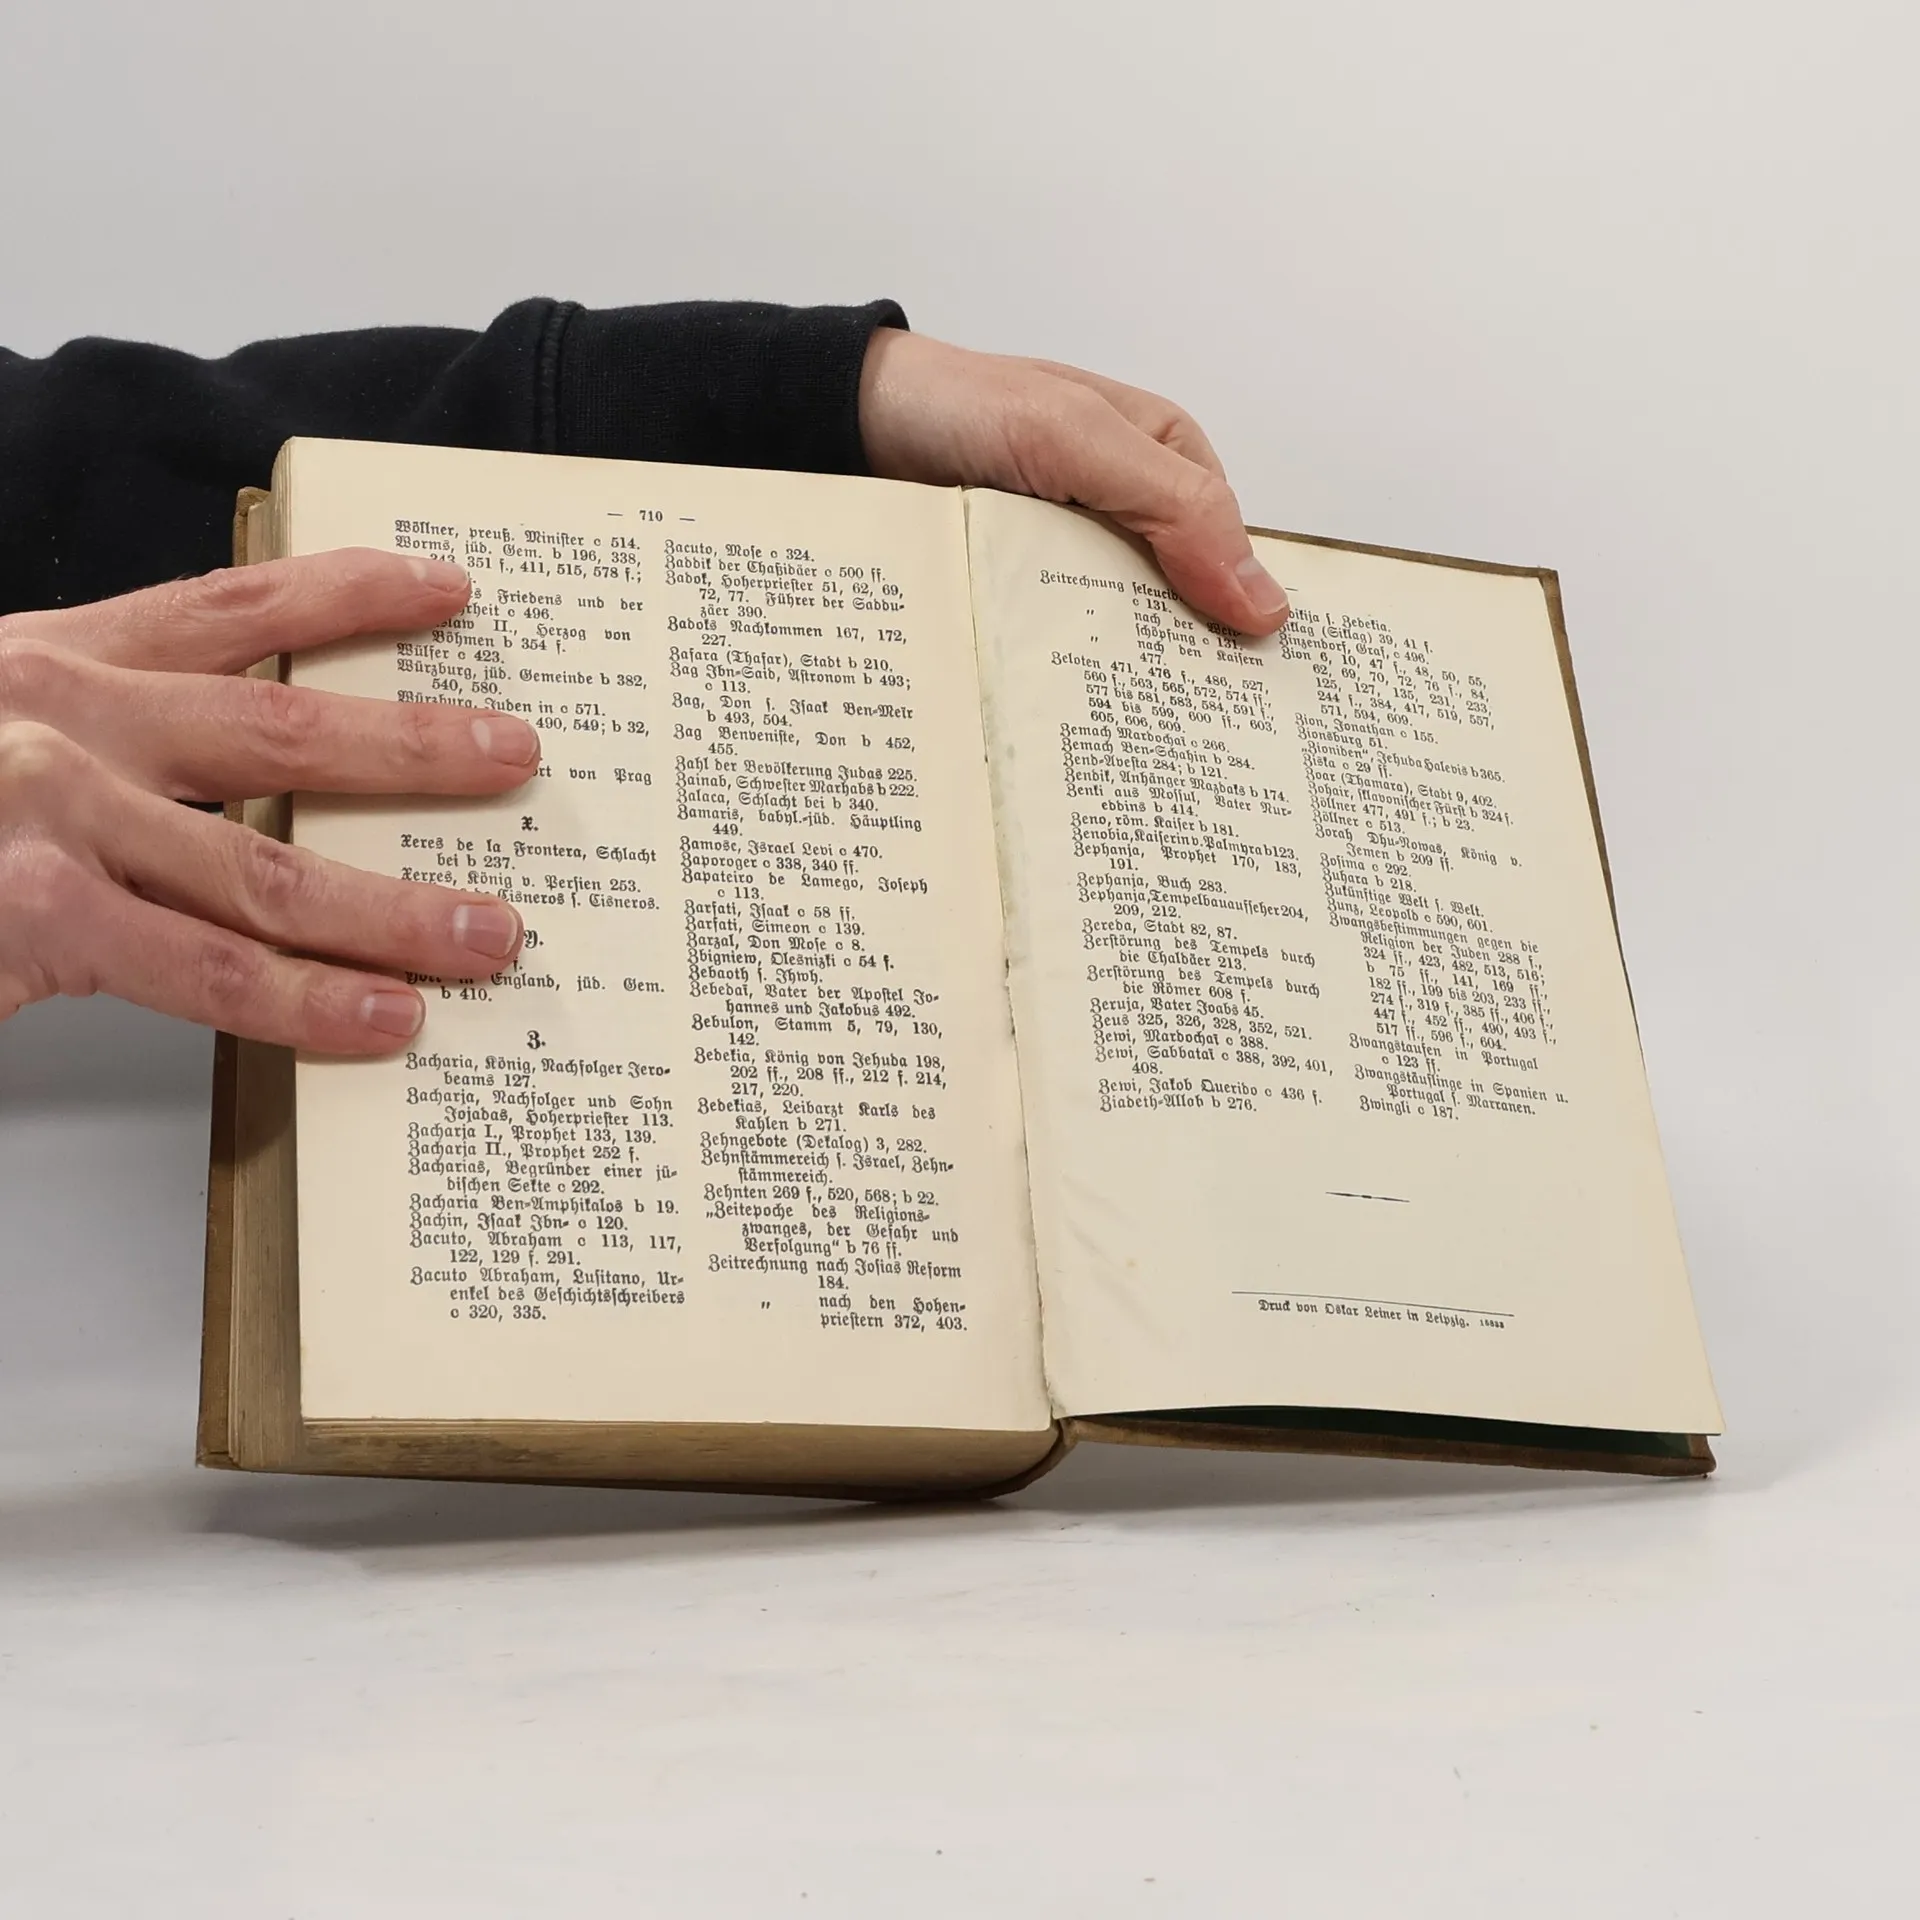 — 710 —
Wöllner, preuß. Miniſter c 514.
Worms, jüd. Gem. b 196, 338,
351 f., 411, 515, 578 f.;
Friedens und der
c 496.
II., Herzog von
Böhmen b 354 f.
Wülfer c 423.
Würzburg, jüd. Gemeinde b 382,
540, 580.
Würzburg, Juden in c 571.
490, 549; b 32,
von Prag
X.
Xeres de la Frontera, Schlacht
bei b 237.
Xerxes, König v. Perſien 253.
Cisneros ſ. Cisneros.
Y.
York in England, jüd. Gem.
b 410.
Z.
Zacharia, König, Nachfolger Jero-
beams 127.
Zacharja, Nachfolger und Sohn
Jojadas, Hoherprieſter 113.
Zacharja I., Prophet 133, 139.
Zacharja II., Prophet 252 f.
Zacharias, Begründer einer jü-
diſchen Sekte c 292.
Zacharia Ben-Amphikalos b 19.
Zachin, Iſaak Ibn- c 120.
Zacuto, Abraham c 113, 117,
122, 129 f. 291.
Zacuto Abraham, Luſitano, Ur-
enkel des Geſchichtsſchreibers
c 320, 335.
Zacuto, Moſe c 324.
Zaddik der Chaßidäer c 500 ff.
Zadok, Hoherprieſter 51, 62, 69,
72, 77. Führer der Saddu-
zäer 390.
Zadoks Nachkommen 167, 172,
227.
Zafara (Thafar), Stadt b 210.
Zag Ibn-Said, Aſtronom b 493;
c 113.
Zag, Don ſ. Iſaak Ben-Meïr
b 493, 504.
Zag Benveniſte, Don b 452,
455.
Zahl der Bevölkerung Judas 225.
Zainab, Schweſter Marhabs b 222.
Zalaca, Schlacht bei b 340.
Zamaris, babyl.-jüd. Häuptling
449.
Zamosc, Israel Levi c 470.
Zaporoger c 338, 340 ff.
Zapateiro de Lamego, Joſeph
c 113.
Zarfati, Iſaak c 58 ff.
Zarfati, Simeon c 139.
Zarzal, Don Moſe c 8.
Zbigniew, Olesnizki c 54 f.
Zebaoth ſ. Ihwh.
Zebedaï, Vater der Apoſtel Jo-
hannes und Jakobus 492.
Zebulon, Stamm 5, 79, 130,
142.
Zedekia, König von Jehuda 198,
202 ff., 208 ff., 212 f. 214,
217, 220.
Zedekias, Leibarzt Karls des
Kahlen b 271.
Zehngebote (Dekalog) 3, 282.
Zehnſtämmereich ſ. Israel, Zehn-
ſtämmereich.
Zehnten 269 f., 520, 568; b 22.
„Zeitepoche des Religions-
zwanges, der Gefahr und
Verfolgung“ b 76 ff.
Zeitrechnung nach Joſias Reform
184.
„ nach den Hohen-
prieſtern 372, 403.
Zeitrechnung
c 131.
„ nach der Welt-
ſchöpfung c 131.
„ nach den Kaiſern
477.
Zeloten 471, 476 f., 486, 527,
560 f., 563, 565, 572, 574 ff.,
577 bis 581, 583, 584, 591 f.,
594 bis 599, 600 ff., 603,
605, 606, 609.
Zemach Mardochaï c 266.
Zemach Ben-Schahin b 284.
Zend-Aveſta 284; b 121.
Zendik, Anhänger Mazdaks b 174.
Zenki aus Moſſul, Vater Nur-
eddins b 414.
Zeno, röm. Kaiſer b 181.
Zenobia, Kaiſerin v. Palmyra b 123.
Zephanja, Prophet 170, 183,
191.
Zephanja, Buch 283.
Zephanja, Tempelbauaufſeher 204,
209, 212.
Zereda, Stadt 82, 87.
Zerſtörung des Tempels durch
die Chaldäer 213.
Zerſtörung des Tempels durch
die Römer 608 f.
Zeruja, Vater Joabs 45.
Zeus 325, 326, 328, 352, 521.
Zewi, Mardochaï c 388.
Zewi, Sabbataï c 388, 392, 401,
408.
Zewi, Jakob Querido c 436 f.
Ziadeth-Allob b 276.
ſ. Zedekia.
Ziklag (Siklag) 39, 41 f.
Zinzendorf, Graf, c 496.
Zion 6, 10, 47 f., 48, 50, 55,
62, 69, 70, 72, 76 f., 84,
125, 127, 135, 231, 233,
244 f., 384, 417, 519, 557,
571, 594, 609.
Zion, Jonathan c 155.
Zionsburg 51.
„Zioniden“, Jehuda Halevis b 365.
Ziska c 29 ff.
Zoar (Thamara), Stadt 9, 402.
Zohair, ſklavoniſcher Fürſt b 324 f.
Zöllner 477, 491 f.; b 23.
Zöllner c 513.
Zorah Dhu-Nowas, König v.
Jemen b 209 ff.
Zoſima c 292.
Zuhara b 218.
Zukünftige Welt ſ. Welt.
Zunz, Leopold c 590, 601.
Zwangsbeſtimmungen gegen die
Religion der Juden 288 f.,
324 ff., 423, 482, 513, 516;
b 75 ff., 141, 169 ff.,
182 ff., 199 bis 203, 233 ff.,
274 f., 319 f., 385 ff., 406 f.,
447 f., 452 ff., 490, 493 f.,
517 ff., 596 f., 604.
Zwangstaufen in Portugal
c 123 ff.
Zwangstäuflinge in Spanien u.
Portugal ſ. Marranen.
Zwingli c 187.
Druck von Oskar Leiner in Leipzig.